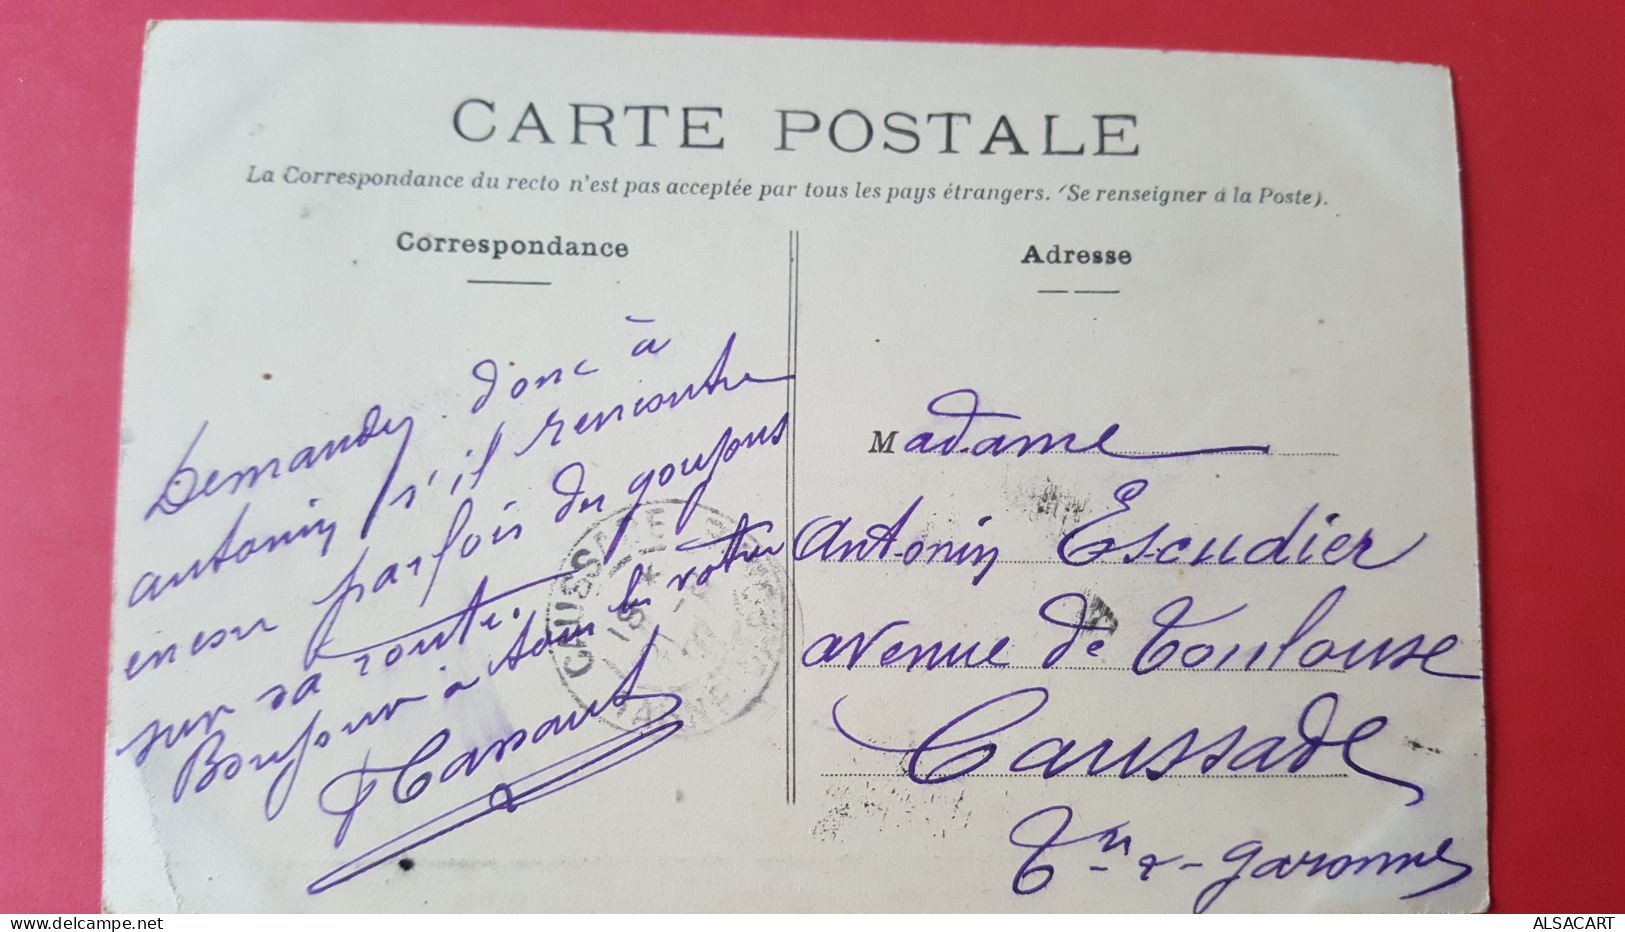 CARTE POSTALE
La Correspondance du recto n'est pas acceptée par tous les pays étrangers. (Se renseigner à la Poste).
Correspondance
Demandez donc à
antonin s'il rencontre
encore parfois des goujons
sur sa route.
Bonjour à tous les votres
Adresse
Madame
Antonin Escudier
avenue de Toulouse
Caussade
Tn & garonne
CAUSSADE
ALSACART